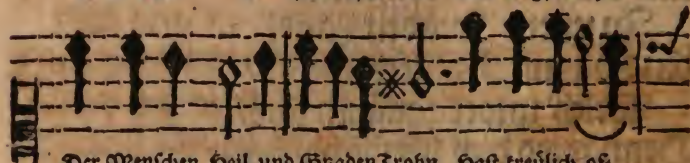 Der Menschen Heil und Gnaden Trohn, Hast treulich ab-